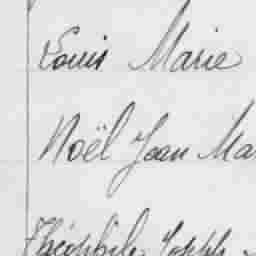 Louis Marie
Noël Jean Ma
Théophile Joseph